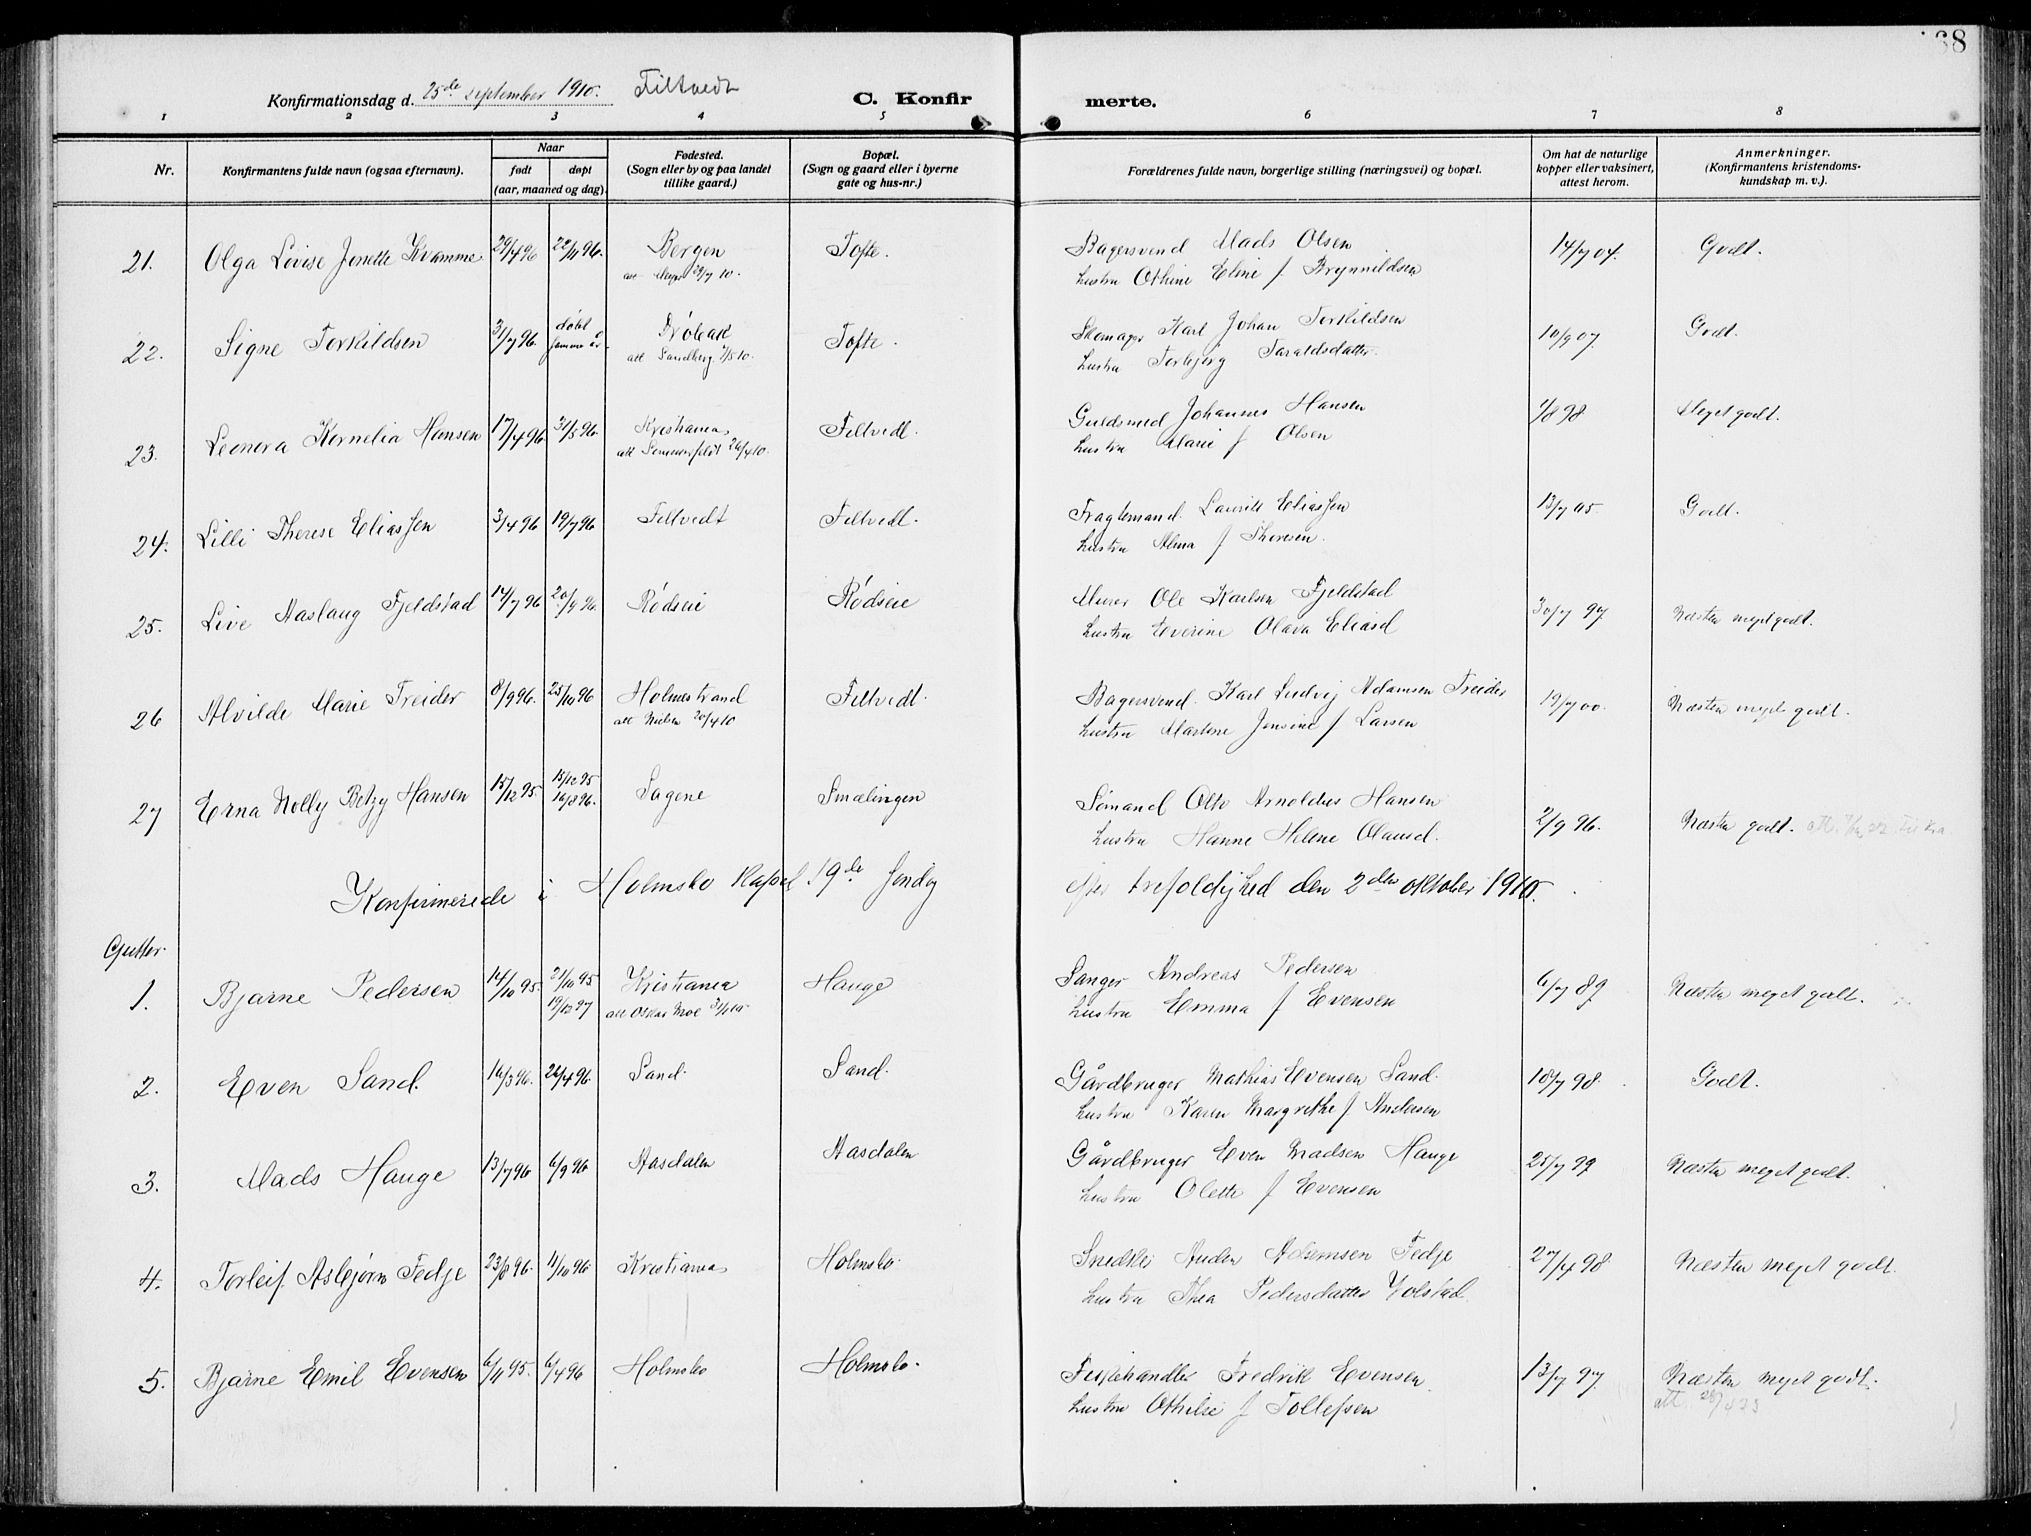 168
Konfirmationsdag d. 25de september 1910. Filtvedt
C. Konfirmerte.
1 2 3 4 5 6 7 8
Nr. Konfirmantens fulde navn (ogsaa efternavn). Naar født døpt (aar, maaned og dag). Fødested. (Sogn eller by og paa landet tillike gaard.) Bopæl. (Sogn og gaard eller i byerne gate og hus-nr.) Forældrenes fulde navn, borgerlige stilling (næringsvei) og bopæl. Om hat de naturlige kopper eller vaksinert, attest herom. Anmerkninger. (Konfirmantens kristendomskundskap m. v.).
21. Olga Lovise Jonette Kvamme 29/4 96 22/11 96. Bergen Tofte. Bagersvend Mads Olsen 14/7 04. Godt.
att 29/7 10. hustru Othine Eline f Brynnildsen
22. Signe Torkildsen 31/7 96. døbt samme år. Drøbak Tofte. Skomager Karl Johan Torkildsen 10/9 07. Godt.
att Sandberg 7/5 10. hustru Torbjørg Taraldsdatter.
23. Leonora Kornelia Hansen 17/4 96 31/5 96. Kristiania Filtvedt. Guldsmed Johannes Hansen 1/8 98 Meget godt.
att Sommerfeldt 26/4 10. hustru Marie f Olsen
24. Lilli Therese Eliassen 3/4 96 19/7 96 Filtvedt Filtvedt. Fragtemand Laurits Eliassen 13/7 05. Godt.
hustru Alma f Thoresen.
25. Live Aaslaug Fjeldstad 14/7 96 20/9 96. Rødseie Rødseie Murer Ole Karlsen Fjeldstad 30/7 97. Næsten meget godt.
hustru Everine Olava Eliasd
26 Alvilde Marie Treider 8/9 96. 25/10 96 Holmestrand Filtvedt. Bagersvend Karl Ludvig Adamsen Treider 19/7 00. Næsten meget godt.
att Nielsen 20/4 10 hustru Martine Jensine f Larsen
27 Erna Molly Betzy Hansen 15/12 95. 15/12 95 16/8 96. Sagene Smælingen Sømand Otto Arnoldus Hansen 2/9 96. Næsten godt.
hustru Hanne Helene Olausd.
Konfirmerede i Holmsbo Kapel 19de søndag efter trefoldighed den 2den oktober 1910.
Gutter
1. Bjarne Pedersen 14/10 95. 21/10 95 19/12 97 Kristiania Hauge Sanger Andreas Pedersen 6/7 89 Næsten meget godt.
att Oskar Moe 31/1 10 hustru Emma f Evensen
2. Even Sand 16/3 96. 26/4 96. Sand. Sand. Gårdbruger Mathias Evensen Sand. 18/7 98. Godt.
hustru Karen Margrethe f Andersen
3. Mads Hauge 13/7 96 6/9 96 Aasdalen Aasdalen Gårdbruger Even Madsen Hauge 25/7 99 Næsten meget godt.
hustru Olette f Evensen
4. Torleif Asbjørn Fedje 23/8 96. 11/10 96 Kristiania Holmsbo. Snedker Auden Adamsen Fedje 27/4 98. Næsten meget godt.
hustru Thea Pedersdatter Yolstad
5. Bjarne Emil Evensen 6/11 95. 6/4 96 Holmsbo Holmsbo. Fiskehandler Fredrik Evensen 13/7 97. Næsten meget godt.
hustru Othilie f Tollefsen att. 28/4 33